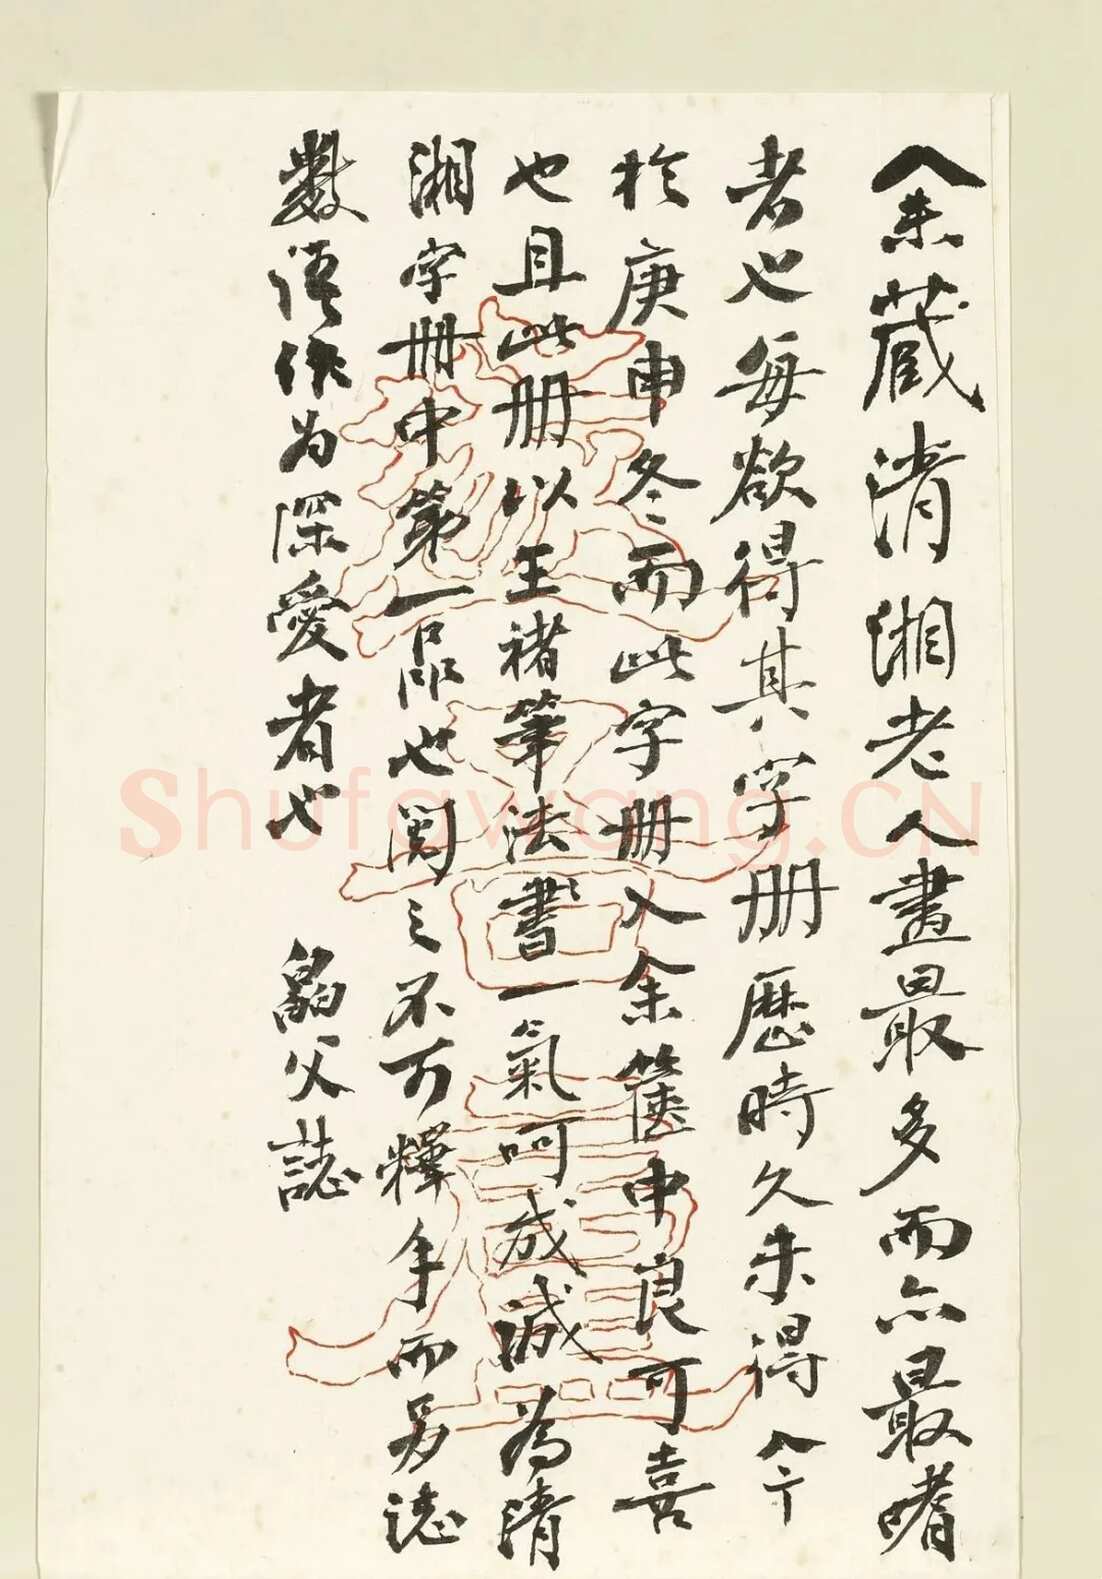 余藏清湘老人畫最多而亦最嗜
者也每欲得其字册歷時久未得今
於庚申冬而此字册入余箧中良可喜
也且此册以王褚筆法書一氣呵成誠為清
湘字册中第一品也閱之不可釋手而另誌
數語作為深愛者也 父誌
Shufawang.CN